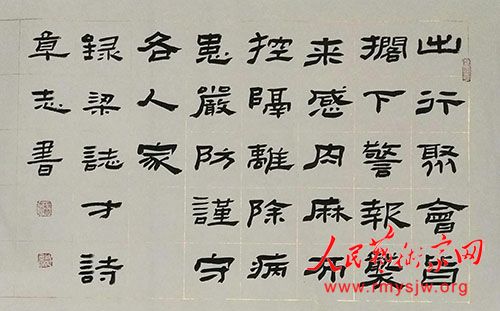 出行聚會皆
擱下警報襲
来感肉麻布
控隔離除病
患嚴防謹守
各人家
錄梁誌才詩
章志書
人民藝術家网
www.rmysjw.org